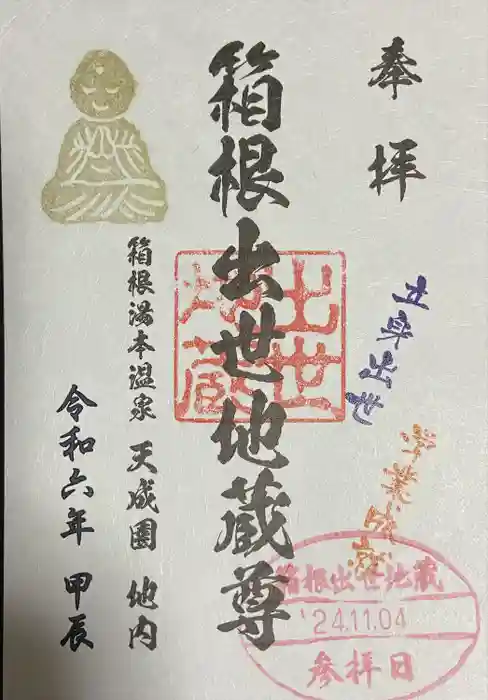 奉拝
立身出世
学業成就
箱根出世地蔵尊
出世
地蔵
箱根出世地蔵
'24.11.04
参拝日
箱根湯本温泉 天成園 地内
令和六年 甲辰